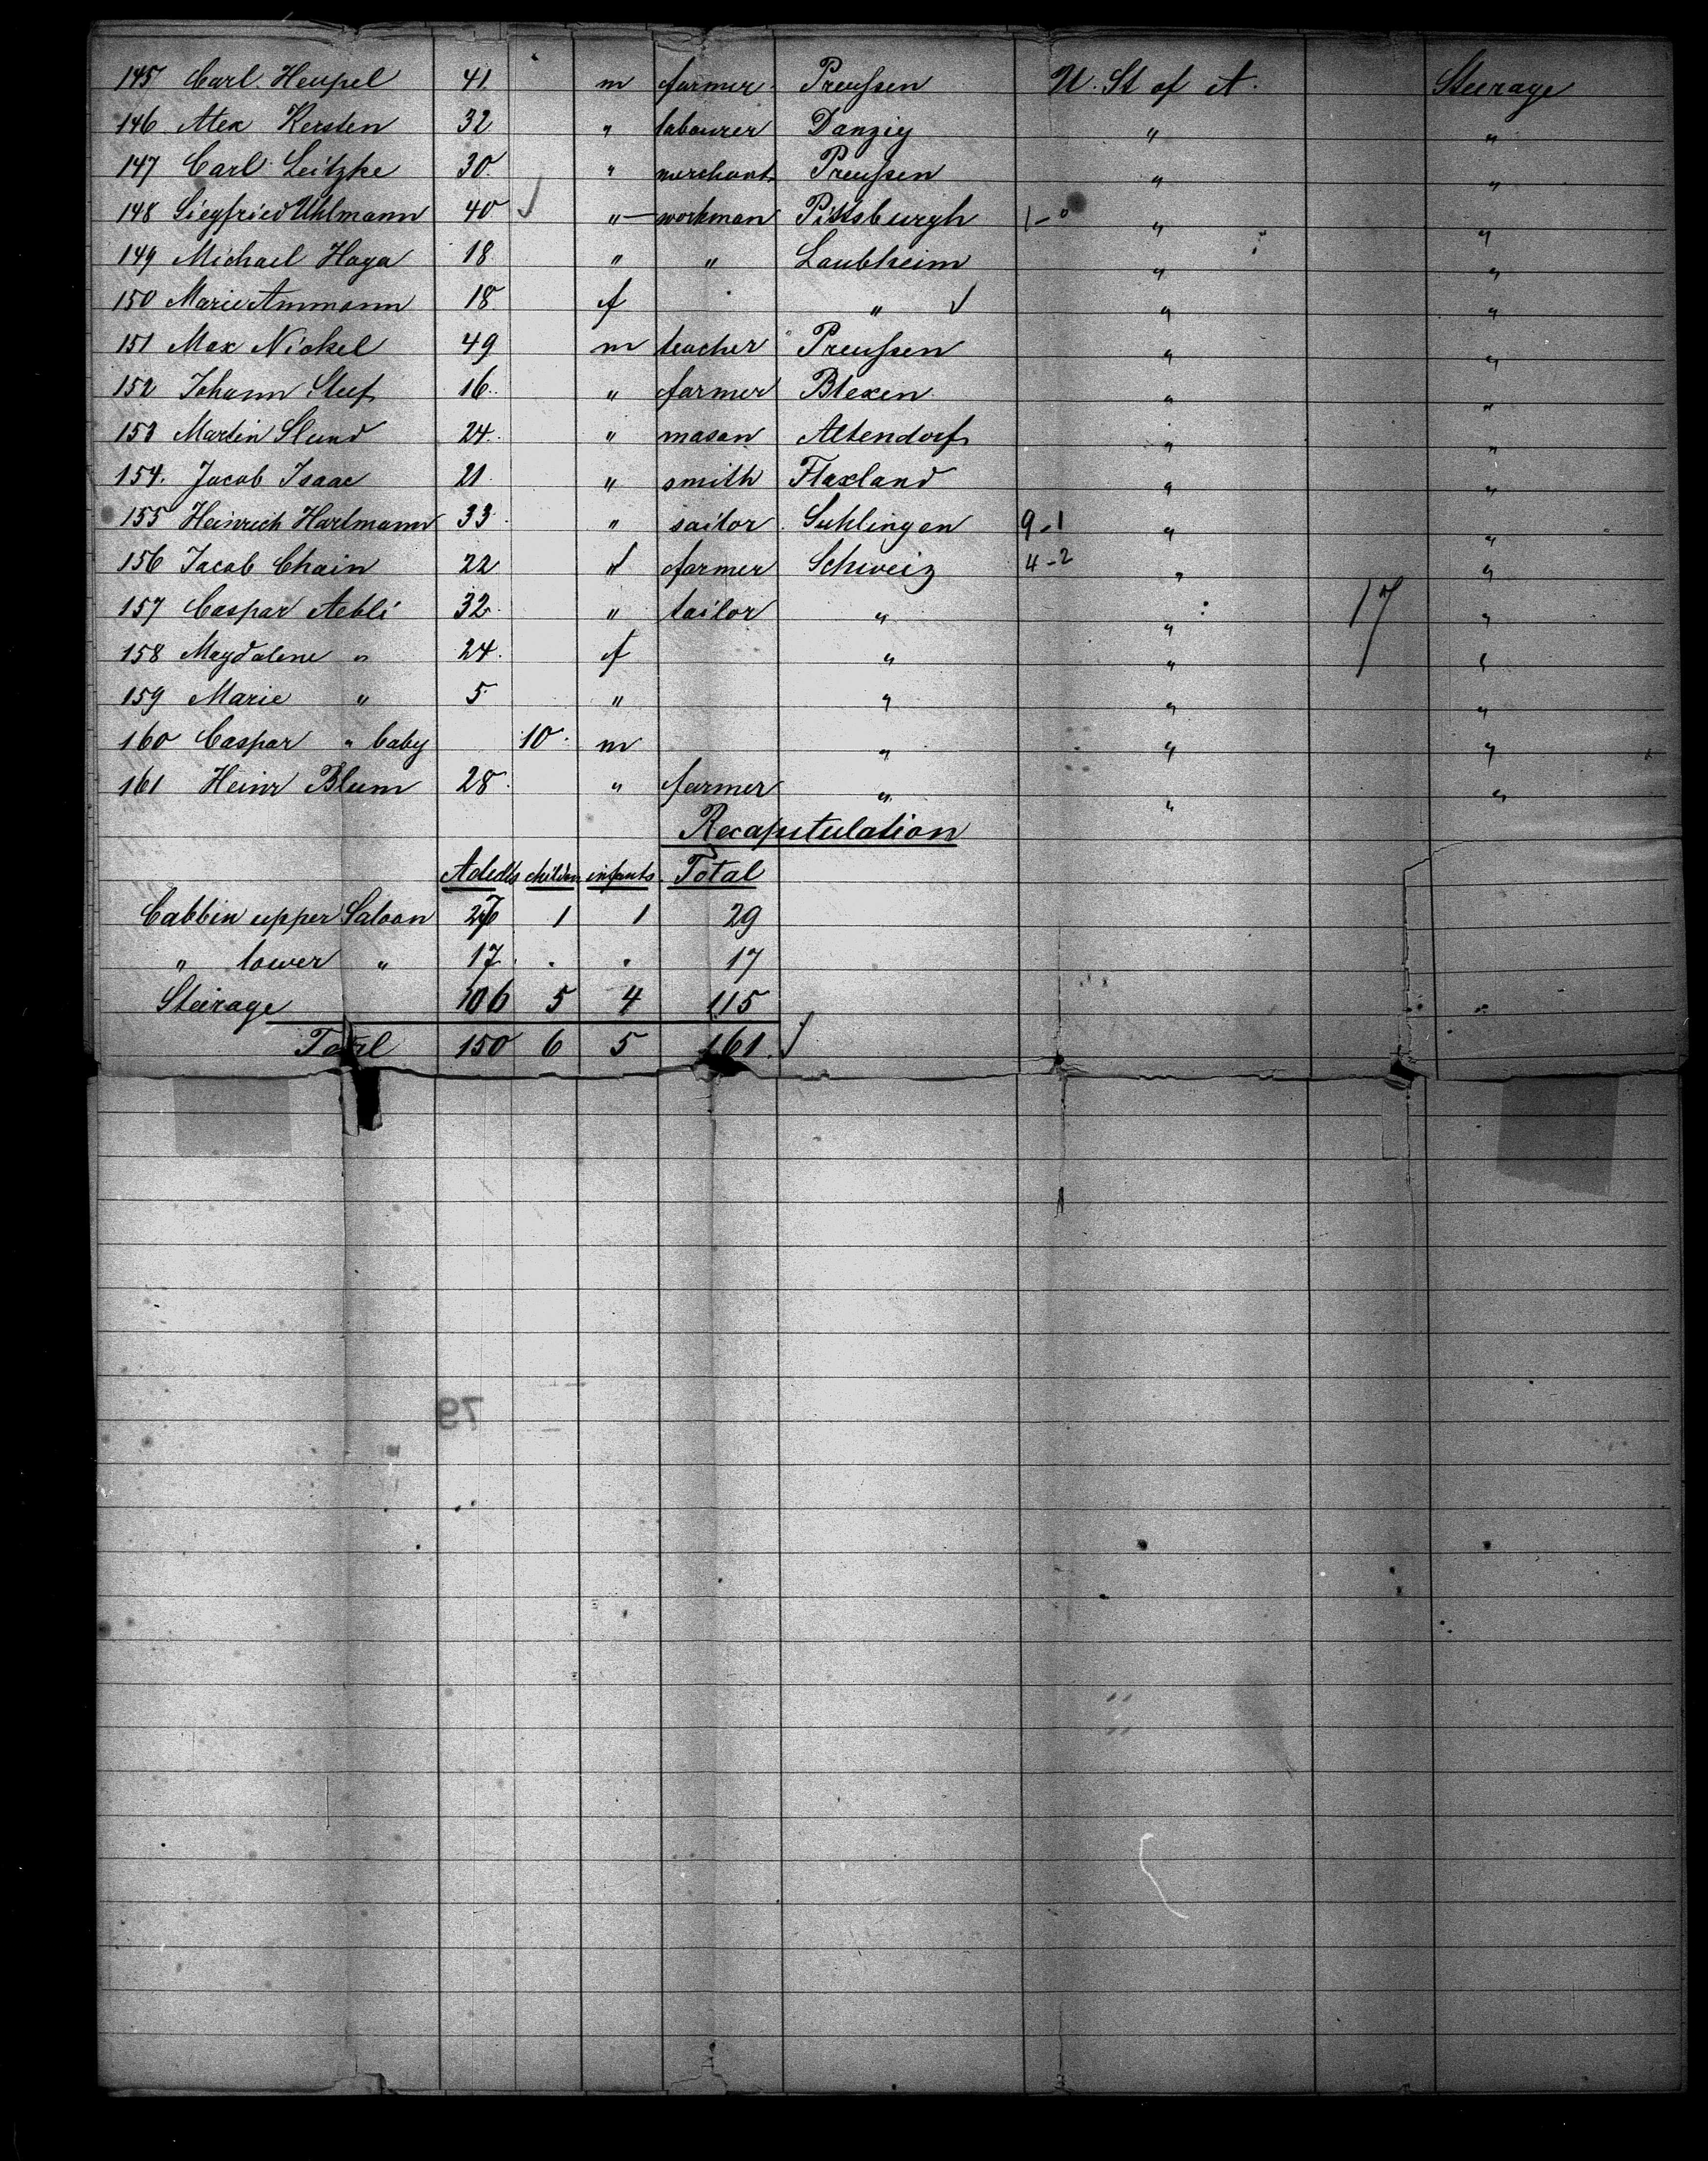 145 Carl Heupel 41. m farmer Preußen U. St of A. Steerage
146 Alex Kersten 32 " labourer Danzig " "
147 Carl Leitzke 30. " merchant Preußen " "
148 Siegfried Uhlmann 40 " workman Pittsburgh 1-0 " "
149 Michael Haga 18 " " Laubheim " "
150 Marie Ammann 18 f " " "
151 Max Nickel 49 m teacher Preußen " "
152 Johann 16. " farmer Blexen " "
153 Martin 24. " mason Altendorf " "
154. Jacob Isaac 21. " smith Flaxland " "
155 Heinrich Hartmann 33. " sailor Suhlingen 9-1 " "
156 Jacob Chain 22 " farmer Schweiz 4-2 " "
157 Caspar Aebli 32. " tailor " " 17 "
158 Magdalene " 24. f " " "
159 Marie " 5. " " " "
160 Caspar " baby 10. m " " "
161 Heinr Blum 28. " farmer " " "
Recaputulation
Adults children infants Total
Cabbin upper Saloon 27 1 1 29
" lower " 17. . . 17
Steirage 106 5 4 115
Total 150 6 5 161.
79